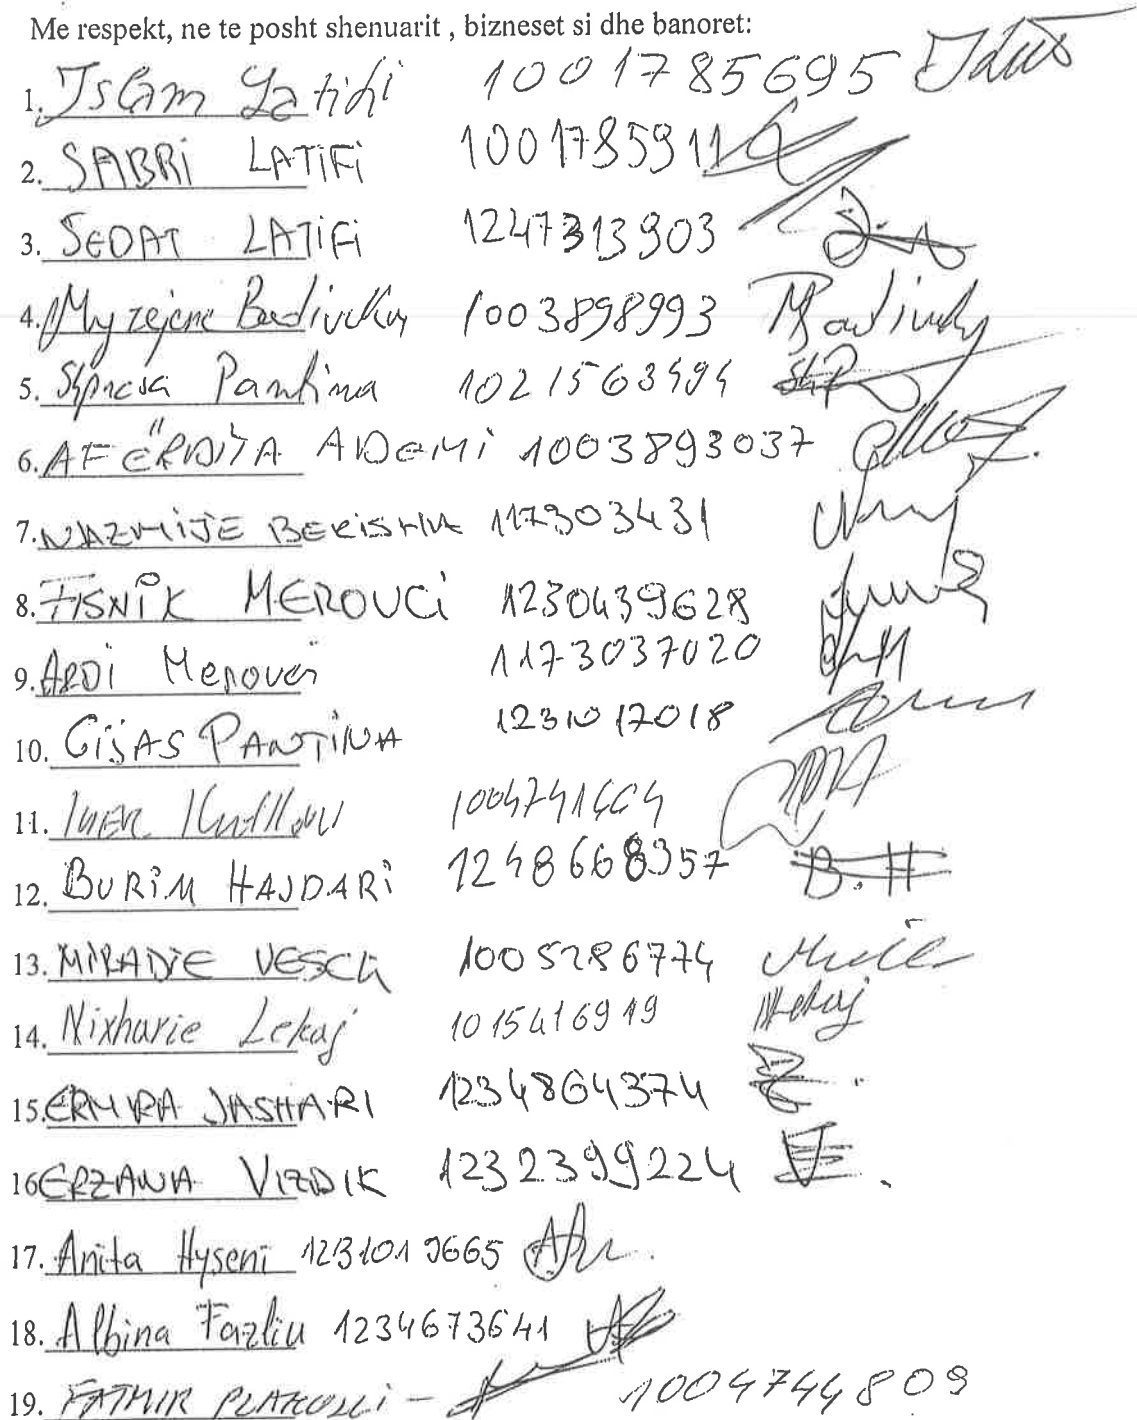 Me respekt, ne te posht shenuarit , bizneset si dhe banoret:
1. Islam Latifi 1001785695
2. SABRI LATIFI 1001785911
3. SEDAT LATIFI 1247313903
4. Myzejene Badivuku 1003898993
5. Shpresa Pantina 1021563494
6. AFËRDITA ADEMI 1003893037
7. NAZMIJE BERISHA 117303431
8. FISNIK MEROVCI 1230439628
9. ARDI Merovci 1173037020
10. GIJAS PANTINA 1231017018
11. 1004741464
12. BURIM HAJDARI 1248668357 B.H
13. MIRADIE VESELI 1005286774
14. Nixharie Lekaj 1015416919
15. ERMIRA JASHARI 1234864374
16 ERZANA 1232399224
17. Anita Hyseni 1231019665
18. Albina Fazliu 1234673641
19. FATMIR PLAKOLLI - 1004744809